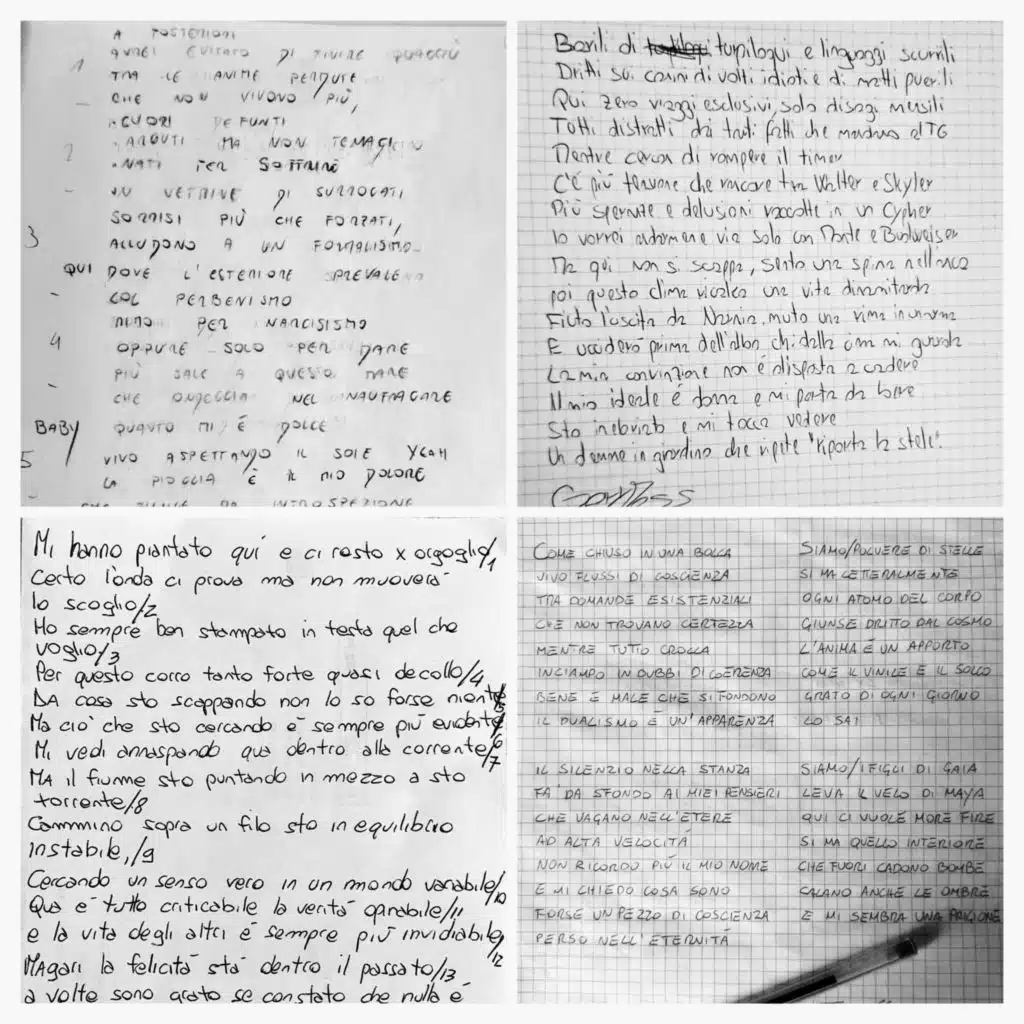 A POSTERIORI
AVREI EVITATO DI VIVERE QUAGGIÙ
1
TRA LE ANIME PERDUTE
- CHE NON VIVONO PIÙ,
CUORI DEFUNTI
2 ARGUTI MA NON TENACI
NATI PER SOFFRIRE
- IN VETRINE DI SURROGATI
SORRISI PIÙ CHE FORZATI,
3 ALLUDONO A UN FORMALISMO
QUI DOVE L'ESTERIORE PREVALE
- COL PERBENISMO
MIRO PER NARCISISMO
4 OPPURE SOLO PER DARE
- PIÙ SALE A QUESTO MARE
CHE ONDEGGIA NEL NAUFRAGARE
BABY QUANTO MI É DOLCE
5 VIVO ASPETTANDO IL SOLE YEAH
LA PIOGGIA È IL MIO DOLORE
- CHE INTROSPEZIONE
Barili di turpiloqui e linguaggi scurrili
Dritti sui casini di volti idioti e di matti puerili
Qui zero viaggi esclusivi, solo disagi mensili
Tutti distratti dai tanti fatti che mandano al TG
Mentre cerca di rompere il timer
C'é più tensione che rancore tra Walter e Skyler
Più speranze e delusioni raccolte in un Cypher
Io vorrei andarmene via solo con Monte e Budweiser
Ma qui non si scappa, sento una spina nell'anca
poi questo clima ricalca una vita dinamitarda
Fiuto l'uscita da Narnia, muto una rima in un'arma
E ucciderò prima dell'alba chi dalla cima mi guarda
La mia convinzione non é disposta a cadere
Il mio ideale é donna e mi porta da bere
Sto inebriato e mi tocca vedere
Un demone in giardino che ripete "riporta le stele".
Mi hanno piantato qui e ci resto x orgoglio/1
Certo l'onda ci prova ma non muoverá
lo scoglio/2
Ho sempre ben stampato in testa quel che
voglio/3
Per questo corro tanto forte quasi decollo/4
DA cosa sto scappando non lo so forse niente/5
Ma ció che sto cercando é sempre piú evidente/6
Mi vedi annaspando qua dentro alla corrente/7
MA il fiume sto puntando in mezzo a sto
torrente/8
Cammino sopra un filo sto in equilibrio
instabile,/9
Cercando un senso vero in un mondo variabile/10
Qua é tutto criticabile la veritá opinabile/11
e la vita degli altri é sempre piú invidiabile/12
MAgari la felicitá stá dentro il passato/13
a volte sono grato se constato che nulla é
COME CHIUSO IN UNA BOLLA
VIVO FLUSSI DI COSCIENZA
TRA DOMANDE ESISTENZIALI
CHE NON TROVANO CERTEZZA
MENTRE TUTTO CROLLA
INCIAMPO IN DUBBI DI COERENZA
BENE E MALE CHE SI FONDONO
IL DUALISMO É UN'APPARENZA
IL SILENZIO NELLA STANZA
FA' DA SFONDO AI MIEI PENSIERI
CHE VAGANO NELL'ETERE
AD ALTA VELOCITÁ
NON RICORDO PIÙ IL MIO NOME
E MI CHIEDO COSA SONO
FORSE UN PEZZO DI COSCIENZA
PERSO NELL'ETERNITÁ
SIAMO/POLVERE DI STELLE
SI MA LETTERALMENTE
OGNI ATOMO DEL CORPO
GIUNSE DRITTO DAL COSMO
L'ANIMA É UN APPORTO
COME IL VINILE E IL SOLCO
GRATO DI OGNI GIORNO
LO SAI
SIAMO/I FIGLI DI GAIA
LEVA IL VELO DI MAYA
QUI CI VUOLE MORE FIRE
SI MA QUELLO INTERIORE
CHE FUORI CADONO BOMBE
CALANO ANCHE LE OMBRE
E MI SEMBRA UNA PRIGIONE